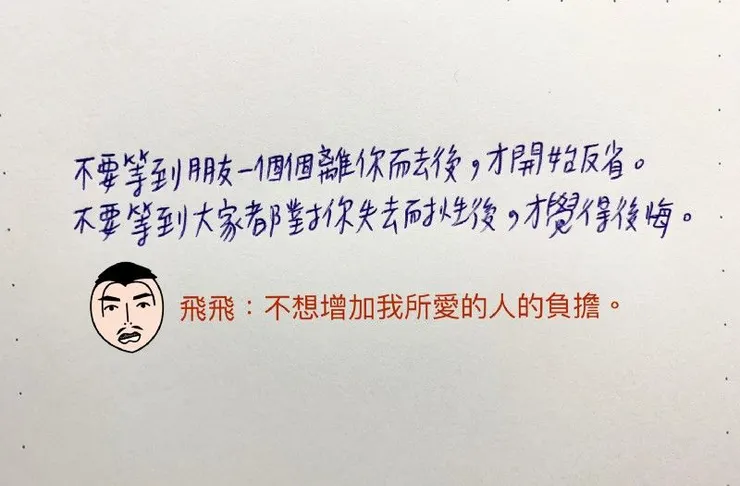 不要等到朋友一個個離你而去後，才開始反省。
不要等到大家都對你失去耐性後，才覺得後悔。
飛飛：不想增加我所愛的人的負擔。